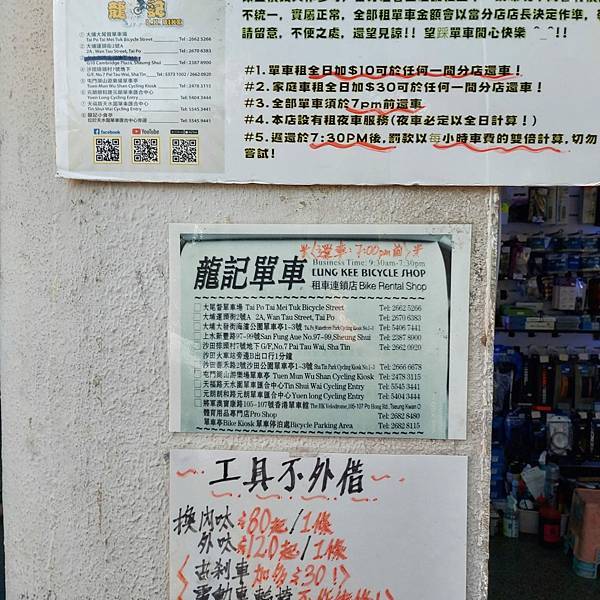 龍記
L.K. BIKE
大埔大尾督單車場
Tai Po Tai Mei Tuk Bicycle Street
Tel: 2662 5266
大埔運頭街2號A
2A, Wan Tau Street, Tai Po
Tel: 2670 6383
G10 Cambridge Plaza, Sheung Shui
Tel: 2387 8900
沙田排頭村7號地下
屯門湖山遊樂場單車亭
Tuen Mun Wu Shan Cycling Kiosk
Tel: 2478 3115
元朗朗和路元朗單車匯合中心
Yuen Long Cycling Entry
Tel: 5404 3444
天福路天水圍單車匯合中心
Tin Shui Wai Cycling Entry
Tel: 5545 3441
龍記小食亭
位於天水圍單車匯合中心旁邊
Tel: 5545 9441
facebook
YouTube
不統一，實屬正常，全部租單車金額會以當分店店長決定作準，
請留意，不便之處，還望見諒!! 望踩單車開心快樂 ^_^!!
#1.單車租全日加$10可於任何一間分店還車！
#2.家庭車租全日加$30可於任何一間分店還車！
#3.全部單車須於7pm前還車
#4.本店設有租夜車服務(夜車必定以全日計算！)
#5.遲還於7:30PM後,罰款以每小時車費的雙倍計算,切勿
嘗試!
還車：7:00pm前
龍記單車
Business Time: 9:30am-7:30pm
LUNG KEE BICYCLE SHOP
租車連鎖店 Bike Rental Shop
大尾督單車場 Tai Po Tai Mei Tuk Bicycle Street Tel: 2662 5266
大埔運頭街2號A 2A, Wan Tau Street, Tai Po Tel: 2670 6383
大埔大發街海濱公園單車亭1-3號 Tai Po Waterfront Park Cycling Kiosk No.1-3 Tel: 5406 7441
上水新豐路97-99號San Fung Aue No.97-99,Sheung Shui Tel: 2387 8900
沙田排頭村7號地下G/F,No.7 Pai Tau Wai, Sha Tin Tel: 2662 0920
沙田火車站旁邊B出口行1分鐘
沙田源禾路2號沙田公園單車亭1-3號 Sha Tin Park Cycling Kiosk No.1-3 Tel: 2666 6678
屯門湖山遊樂場單車亭 Tuen Mun Wu Shan Cycling Kiosk Tel: 2478 3115
天福路天水圍單車匯合中心Tin Shui Wai Cycling Entry Tel: 5545 3444
元朗朗和路元朗單車匯合中心 Yuen long Cycling Entry Tel: 5404 3444
體育用品專門店Pro Shop Tel: 2682 8480
單車亭Bike Kiosk 單車停泊處Bicycle Parking Area Tel: 2682 8115
工具不外借
換內呔$80起/1條
外呔$120起/1條
加多$30！
電動車